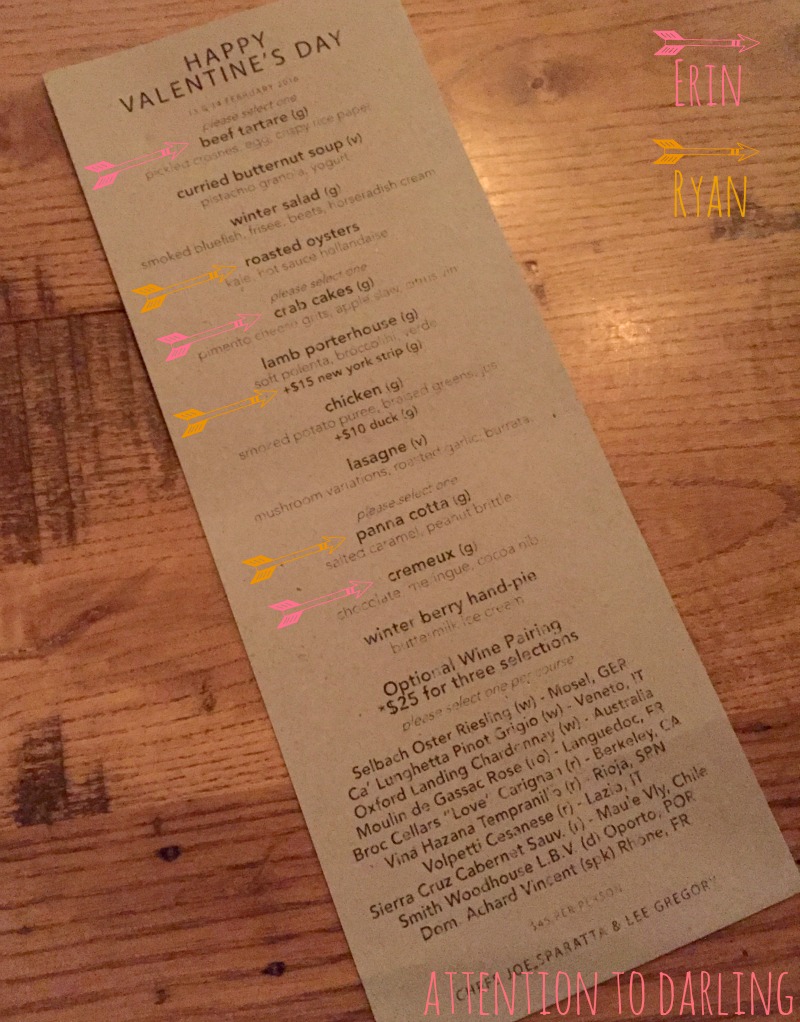 HAPPY
VALENTINE'S DAY
13 & 14 FEBRUARY 2016
please select one
beef tartare (g)
pickled crosnes, egg, crispy rice paper
curried butternut soup (v)
pistachio granola, yogurt
winter salad (g)
smoked bluefish, frisee, beets, horseradish cream
roasted oysters
kale, hot sauce hollandaise
please select one
crab cakes (g)
pimento cheese grits, apple slaw, citrus
lamb porterhouse (g)
soft polenta, broccolini, verde
+$15 new york strip (g)
chicken (g)
smoked potato puree, braised greens, jus
+$10 duck (g)
lasagne (v)
mushroom variations, roasted garlic, burrata
please select one
panna cotta (g)
salted caramel, peanut brittle
cremeux (g)
chocolate, meringue, cocoa nib
winter berry hand-pie
buttermilk ice cream
Optional Wine Pairing
*$25 for three selections
please select one per course
Selbach Oster Riesling (w) - Mosel, GER
Ca' Lunghetta Pinot Grigio (w) - Veneto, IT
Oxford Landing Chardonnay (w) - Australia
Moulin de Gassac Rose (ro) - Languedoc, FR
Broc Cellars "Love" Carignan (r) - Berkeley, CA
Vina Hazana Tempranillo (r) - Rioja, SPN
Volpetti Cesanese (r) - Lazio, IT
Sierra Cruz Cabernet Sauv. (r) - Maule Vly, Chile
Smith Woodhouse L.B.V. (d) Oporto, POR
Dom. Achard Vincent (spk) Rhone, FR
$45 PER PERSON
CHEFS JOE SPARATTA & LEE GREGORY
ERIN
RYAN
ATTENTION TO DARLING